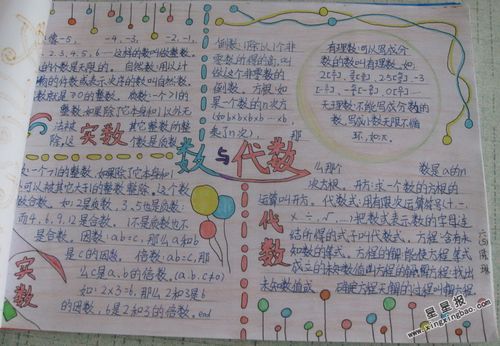 像-5, -4,-3, -2,-1,
2,3,4,5,6……这样的数叫做整数。
的个数是无限的。自然数:用以计
物的件数或表示次序的数叫自然数。
整数,如果除了它本身和1以外无
法被 其它整数所整
除,这个数是质数
实数
倒数:1除以1个非
零数所得的商,叫
做这个非零数的
倒数。方根:如
果一个数的n次方
(如b×b×b×b…×b,
乘了n次), 那
有理数:可以写成分
数的数叫有理数。如:
无理数:不能写成分数的
数,写成小数无限不循
环,如π。
数与代数
一个>1的整数,如果除了它本身和1
可以被其它大于1的整数整除,这个数
数合数。如:2是质数,3.5也是质数;
而4,6,9,12是合数。1不是质数也不
是合数。因数:ab=c,那么a和b
是c的因数。倍数:ab=c,那
么c是a、b的倍数。(a.b.c≠0)
如:2×3=6,那么2和3是6
的因数,6是2和3的倍数。end
实数
代数
么那个 数是a的n
次方根。开方:求一个数的方根的
运算叫开方。代数式:用有限次运算符号(+、-、
×、÷、√…)把数或表示数的字母连
结所得的式子叫代数式。方程:含有未
知数的等式。方程的解:能使方程等式
成立的未知数值叫方程的解。解方程:找出
未知数值或 确定方程无解的过程叫解方程
星星报
www.xingxingbao.com